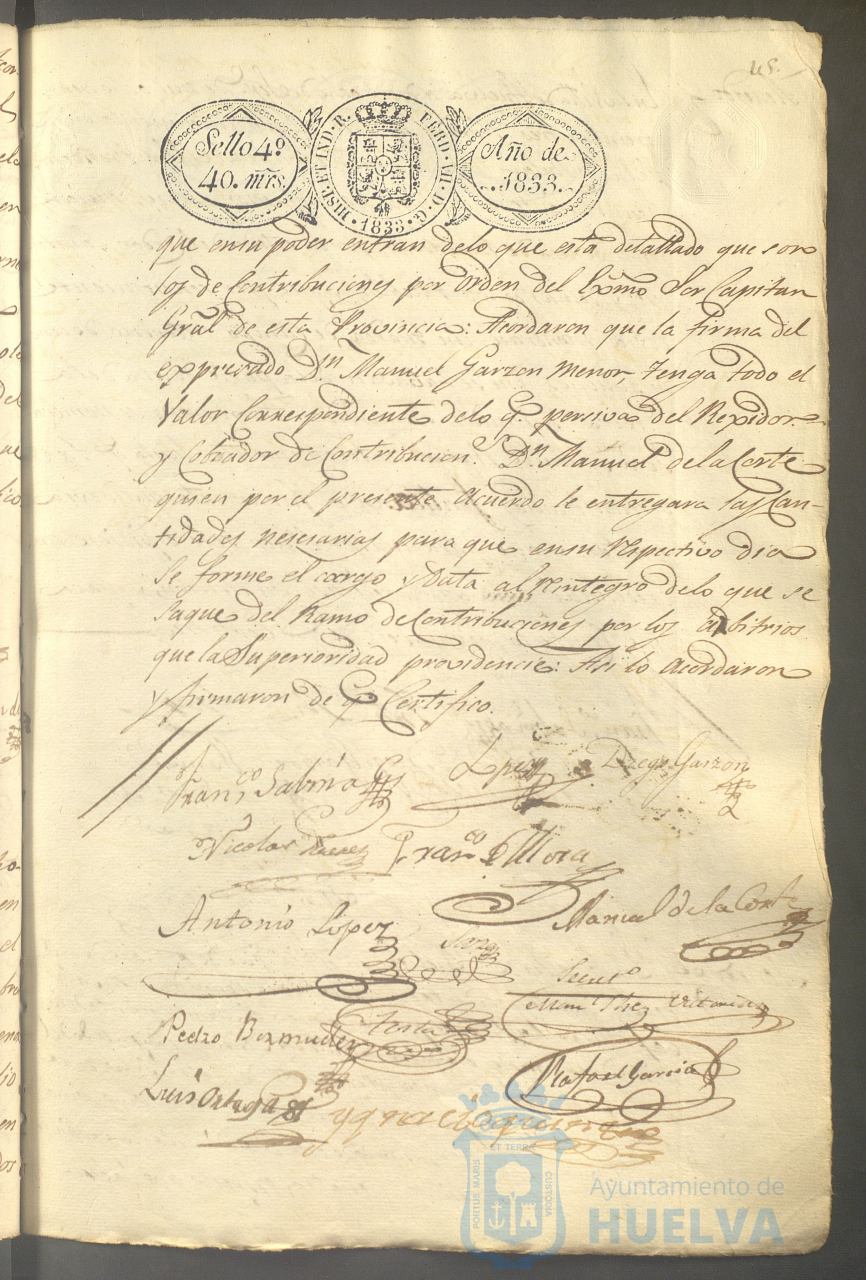 45.
Sello 4º
40. mrs.
HISP. ET IND. R. FERD. VII. D. G. 1833
Año de
1833.
que en su poder entran delo que esta detallado que son
los de Contribuciones por orden del Exmo Sor Capitan
Gral de esta Provincia: Acordaron que la firma del
expresado Dn Manuel Garzon menor, tenga todo el
Valor Correspondiente delo q. persiva del Rexidor
y Cobrador de Contribucion.s Dn Manuel dela Corte
quien por el presente Acuerdo le entregara las Can-
tidades nesesarias para que en su respectivo dia
se forme el cargo y Data al Reintegro delo que se
saque del Ramo de Contribuciones por los arbitrios
que la Superioridad providencie: Asi lo Acordaron
y firmaron de q. Certifico.
Franco Sabina
Lopez
Diego Garzon
Nicolas
Franco de Mora
Antonio Lopez
Manuel de la Corte
Pedro Bermudez
Rafael Garcia
Luis Ortega
PORTUS MARIS ET TERRAE CUSTODIA
Ayuntamiento de
HUELVA